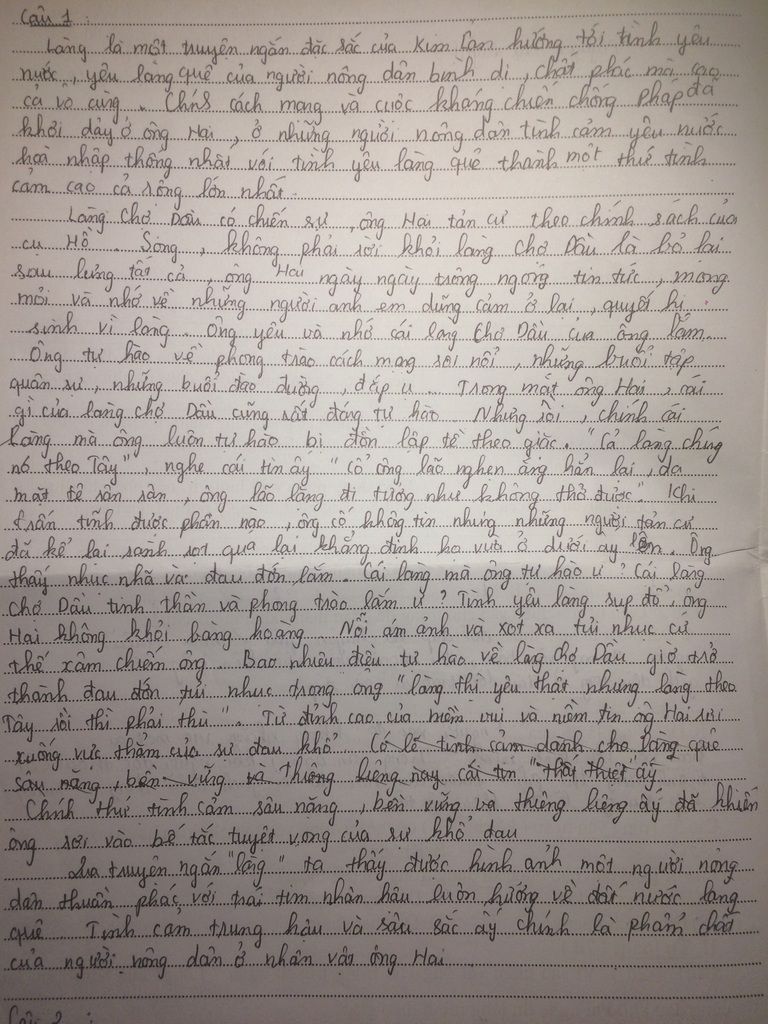 Câu 1 :
Làng là một truyện ngắn đặc sắc của Kim Lân hướng tới tình yêu
nước, yêu làng quê của người nông dân bình dị, chất phác mà cao
cả vô cùng. Chính cách mạng và cuộc kháng chiến chống Pháp đã
khơi dậy ở ông Hai, ở những người nông dân tình cảm yêu nước
hoà nhập thống nhất với tình yêu làng quê thành một thứ tình
cảm cao cả rộng lớn nhất.
Làng Chợ Dầu có chiến sự, ông Hai tản cư theo chính sách của
cụ Hồ. Song, không phải rời khỏi làng chợ Dầu là bỏ lại
sau lưng tất cả, ông Hai ngày ngày trông ngóng tin tức, mong
mỏi và nhớ về những người anh em dũng cảm ở lại, quyết hi
sinh vì làng. Ông yêu và nhớ cái làng Chợ Dầu của ông lắm.
Ông tự hào về phong trào cách mạng sôi nổi, những buổi tập
quân sự, những buổi đào đường, đắp ụ... Trong mắt ông Hai, cái
gì của làng chợ Dầu cũng rất đáng tự hào. Nhưng rồi, chính cái
làng mà ông luôn tự hào bị đồn lập tề theo giặc. "Cả làng chúng
nó theo Tây", nghe cái tin ấy "cổ ông lão nghẹn ắng hẳn lại, da
mặt tê rân rân, ông lão lặng đi tưởng như không thở được." Khi
trấn tĩnh được phần nào, ông cố không tin nhưng những người tản cư
đã kể lại rành rọt quá lại khẳng định họ vừa ở dưới ấy lên. Ông
thấy nhục nhã và đau đớn lắm. Cái làng mà ông tự hào ư? Cái làng
Chợ Dầu tinh thần và phong trào lắm ư? Tình yêu làng sụp đổ, ông
Hai không khỏi bàng hoàng. Nỗi ám ảnh và xót xa tủi nhục cứ
thế xâm chiếm ông. Bao nhiêu điều tự hào về làng chợ Dầu giờ trở
thành đau đớn, tủi nhục trong ông "làng thì yêu thật nhưng làng theo
Tây rồi thì phải thù". Từ đỉnh cao của niềm vui và niềm tin ông Hai rơi
xuống vực thẳm của sự đau khổ. Có lẽ tình cảm dành cho làng quê
sâu nặng, bền vững và thiêng liêng này cái tin "thất thiệt" ấy
Chính thứ tình cảm sâu nặng, bền vững và thiêng liêng ấy đã khiến
ông rơi vào bế tắc tuyệt vọng của sự khổ đau
Qua truyện ngắn "làng" ta thấy được hình ảnh một người nông
dân thuần phác với trái tim nhân hậu luôn hướng về đất nước làng
quê. Tình cảm trung hậu và sâu sắc ấy chính là phẩm chất
của người nông dân ở nhân vật ông Hai
Câu 2 :